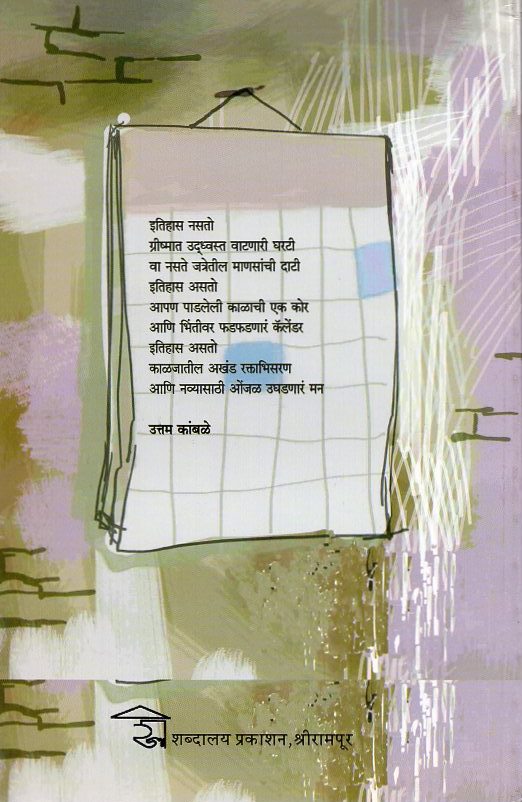 इतिहास नसतो
ग्रीष्मात उद्ध्वस्त वाटणारी घरटी
वा नसते जत्रेतील माणसांची दाटी
इतिहास असतो
आपण पाडलेली काळाची एक कोर
आणि भिंतीवर फडफडणारं कॅलेंडर
इतिहास असतो
काळजातील अखंड रक्ताभिसरण
आणि नव्यासाठी ओंजळ उघडणारं मन
उत्तम कांबळे
शब्दालय प्रकाशन,श्रीरामपूर